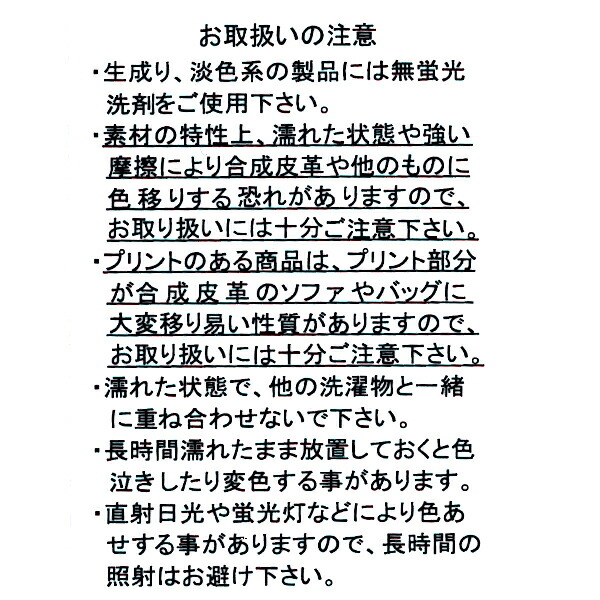 お取扱いの注意
・生成り、淡色系の製品には無蛍光
洗剤をご使用下さい。
・素材の特性上、濡れた状態や強い
摩擦により合成皮革や他のものに
色移りする恐れがありますので、
お取り扱いには十分ご注意下さい。
・プリントのある商品は、プリント部分
が合成皮革のソファやバッグに
大変移り易い性質がありますので、
お取り扱いには十分ご注意下さい。
・濡れた状態で、他の洗濯物と一緒
に重ね合わせないで下さい。
・長時間濡れたまま放置しておくと色
泣きしたり変色する事があります。
・直射日光や蛍光灯などにより色あ
せする事がありますので、長時間の
照射はお避け下さい。